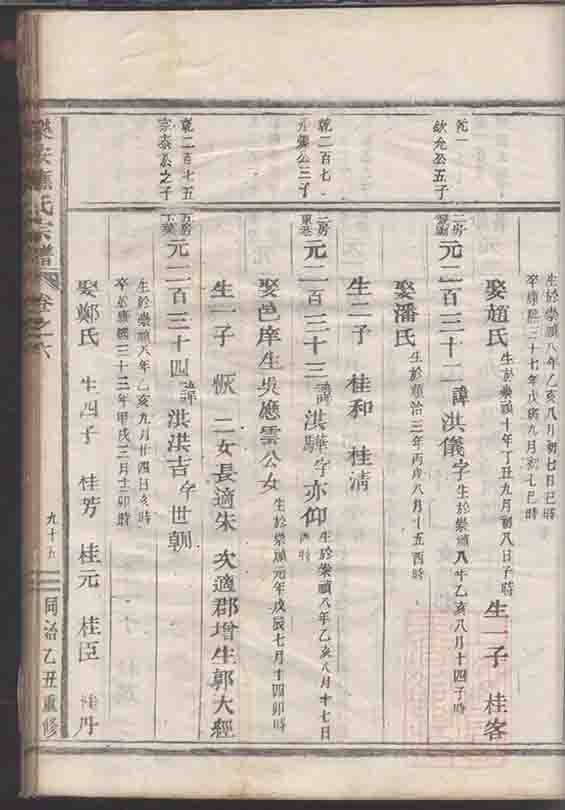 生於崇禎八年乙亥八月初七日巳時
卒康熙三十七年戊寅九月初七巳時
娶趙氏 生於崇禎十年丁丑九月初八日子時 生一子 桂客
乾一
欽允公五子
二房
元二百三十二 諱洪儀字 生於崇禎八年乙亥八月十四子時
娶潘氏 生於順治三年丙戌八月十五酉時
生二子 桂和 桂清
乾二百七
公三子
二房
東巷
元二百三十三 諱洪驊字亦仰 生於崇禎八年乙亥八月十七日
時
娶邑庠生吳應雲公女 生於崇禎元年戊辰七月十四卯時
生一子 恢 二女長適朱 次適郡增生郭大經
乾二百七五
宗泰公之子
五房
元二百三十四 諱洪洪吉字世朝
生於崇禎八年乙亥九月廿四日亥時
卒於康熙三十三年甲戌三月十二卯時
娶鄭氏 生四子 桂芳 桂元 桂臣 桂丹
氏宗譜 卷之六 九十五 同治乙丑重修